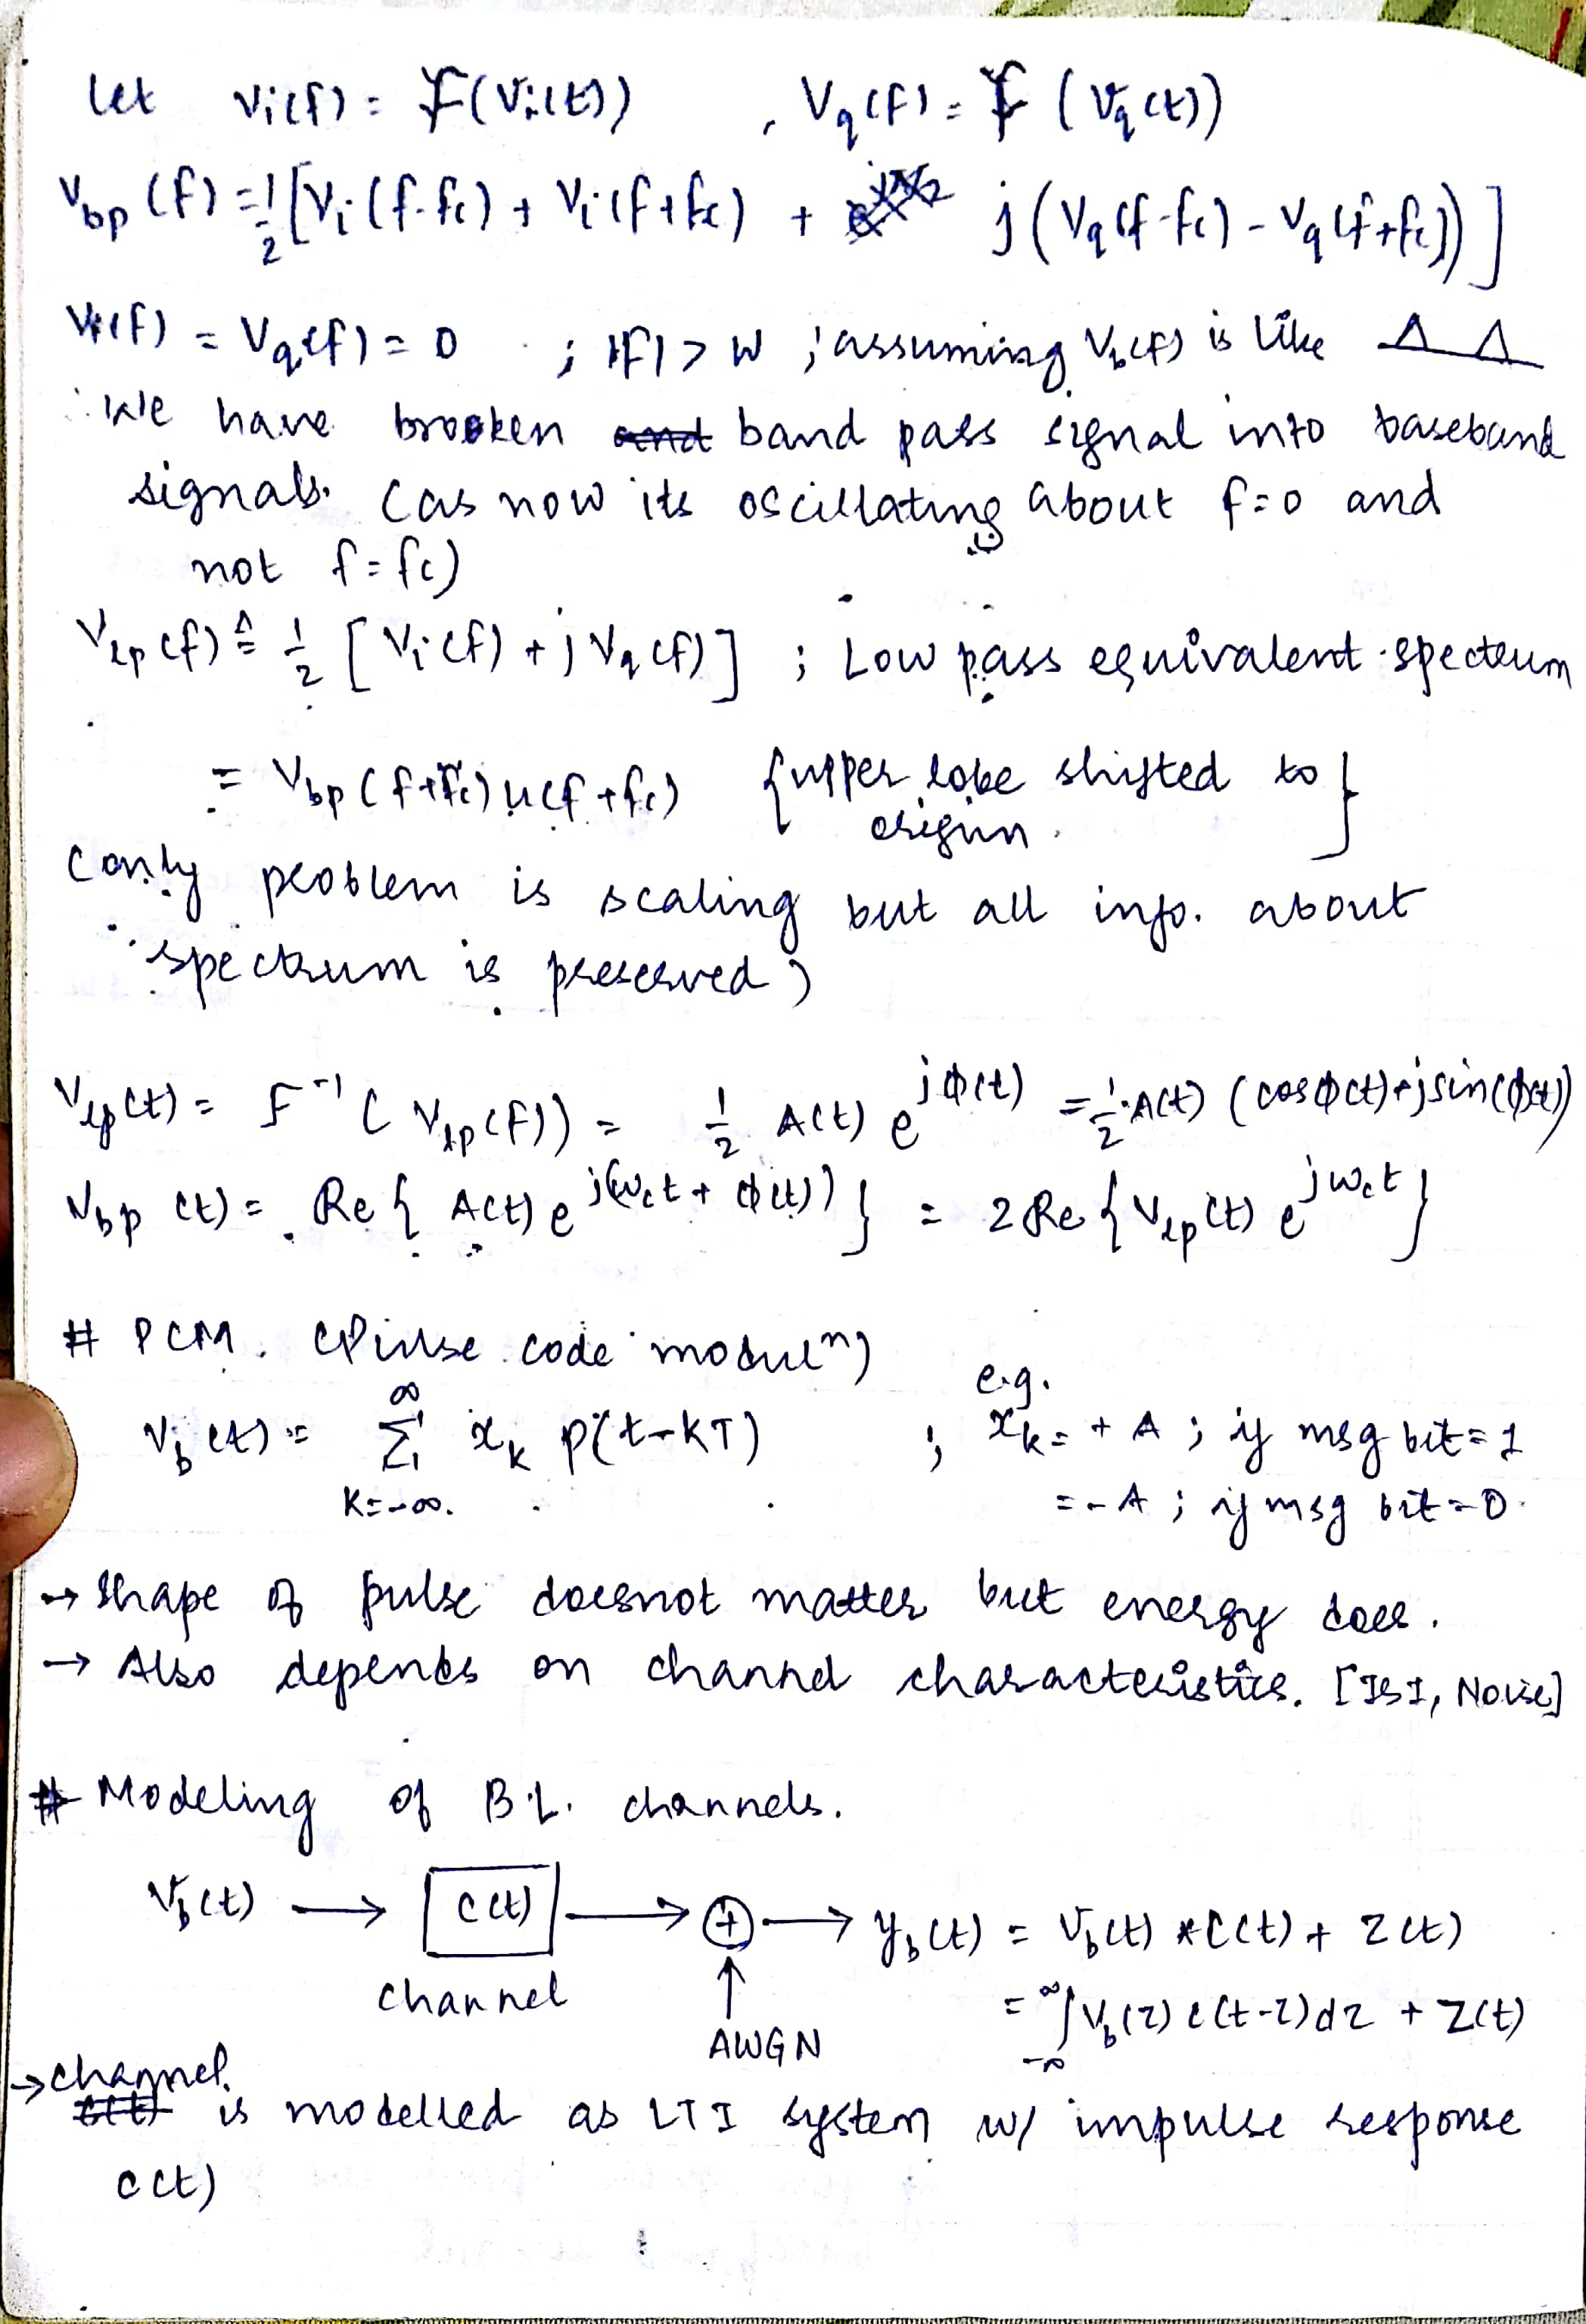 Let Vi(f) = F(Vi(t)) , Vq(f) = F(Vq(t))
Vbp(f) = 1/2 [Vi(f-fc) + Vi(f+fc) + j(Vq(f-fc) - Vq(f+fc))]
Vi(f) = Vq(f) = 0 ; |f| > W ; assuming Vb(f) is like
∴ We have brooken band pass signal into baseband
signals. (as now its oscillating about f=0 and
not f=fc)
Vlp(f) ≜ 1/2 [Vi(f) + jVq(f)] ; Low pass equivalent spectrum
= Vbp(f+fc) u(f+fc) {upper lobe shifted to
origin}
(only problem is scaling but all info. about
spectrum is preserved)
Vlp(t) = F⁻¹(Vlp(f)) = 1/2 A(t) e^jϕ(t) = 1/2 A(t) (cosϕ(t)+jsin(ϕ(t))
Vbp(t) = Re{A(t) e^j(ωct + ϕ(t))} = 2Re{Vlp(t) e^jωct}
# PCM. (Pulse code modulⁿ)
e.g.
Vb(t) = ∑ k=-∞ ∞ xk p(t-kT) ; xk = +A ; if msg bit=1
= -A ; if msg bit=0.
→ Shape of pulse doesnot matter but energy does.
→ Also depends on channel characteristics. [ISI, Noise]
# Modeling of B.L. channels.
Vb(t) → C(t) → + → yb(t) = Vb(t) * C(t) + Z(t)
channel
= ∞∫-∞ Vb(τ) c(t-τ)dτ + Z(t)
AWGN
→ channel is modelled as LTI system w/ impulse response
c(t)